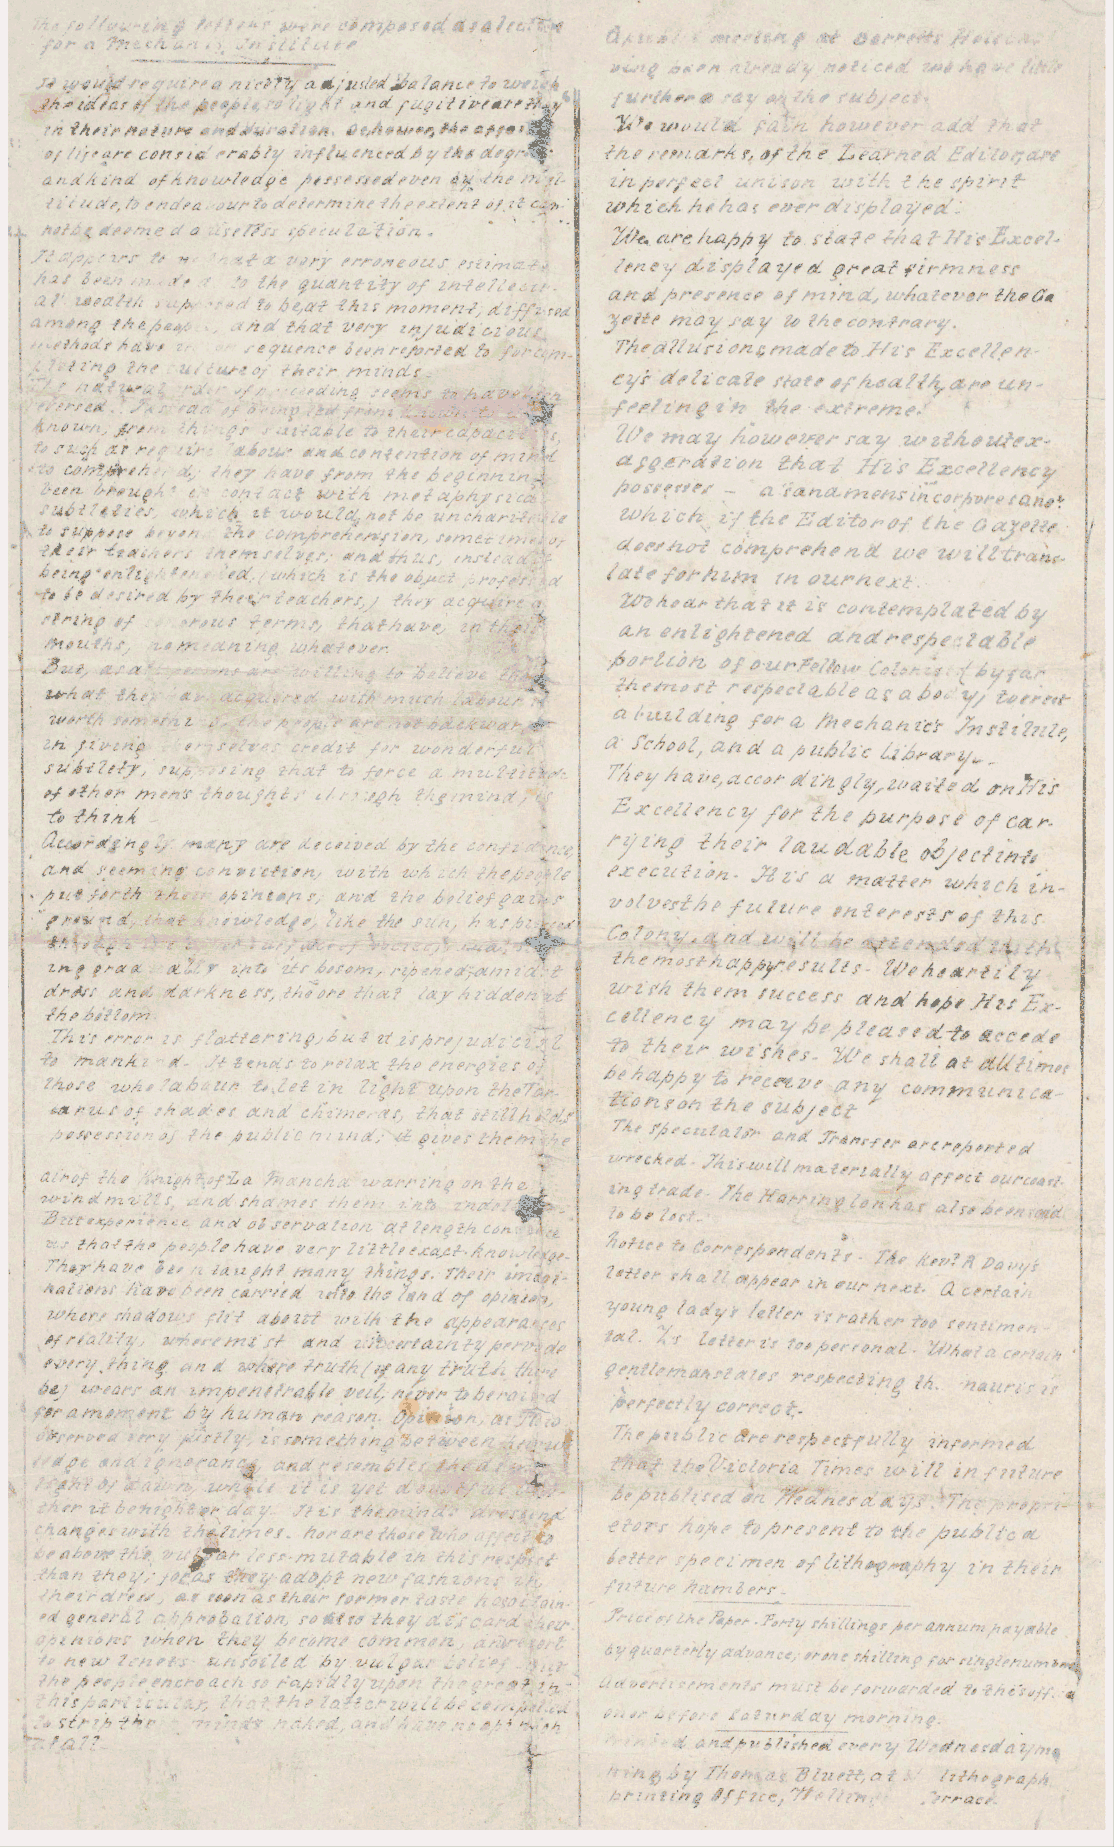 The following letters were composed as a lecture
for a Mechanics Institute
It would require a nicely adjusted balance to weigh
the ideas of the people, so light and fugitive are they
in their nature and duration. As however, the affairs
of life are considerably influenced by the degree
and kind of knowledge possessed even by the mul-
titude, to endeavour to determine the extent of it can
not be deemed a useless speculation.
It appears to me that a very erroneous estimate
has been made as to the quantity of intellectu-
al wealth supposed to be at this moment, diffused
among the people, and that very injudicious
methods have in consequence been resorted to for com-
pleting the culture of their minds.
The natural order of proceeding seems to have been
reversed. Instead of being led from known to un-
known, from things suitable to their capacities,
to such as require labour and contention of mind
to comprehend; they have from the beginning
been brought in contact with metaphysical
subtleties, which it would not be uncharitable
to suppose beyond the comprehension, sometimes of
their teachers themselves; and thus, instead of
being enlightened, (which is the object professed
to be desired by their teachers,) they acquire a
string of sonorous terms, that have, in their
mouths, no meaning whatever.
But, as all persons are willing to believe that
what they have acquired with much labour is
worth something, the people are not backward
in giving themselves credit for wonderful
subtlety, supposing that to force a multitude
of other men's thoughts through the mind, is
to think
Accordingly many are deceived by the confidence,
and seeming conviction, with which the people
put forth their opinions; and the belief gains
ground, that knowledge, like the sun, has pierced
through the
ing gradually into its bosom, ripened, amidst
dross and darkness, the ore that lay hidden at
the bottom.
This error is flattering, but it is prejudicial
to mankind. It tends to relax the energies of
those who labour to let in light upon the Tar-
tarus of shades and chimeras, that still holds
possession of the public mind; it gives them the
air of the Knight of La Mancha warring on the
windmills, and shames them into indolence.
But experience and observation at length convince
us that the people have very little exact knowledge.
They have been taught many things. Their imagi-
nations have been carried into the land of opinion,
where shadows flit about with the appearances
of reality, where mist and uncertainty pervade
every thing and where truth (if any truth there
be) wears an impenetrable veil, never to be raised
for a moment by human reason. Opinion, as Plato
observed very justly, is something between know-
ledge and ignorance, and resembles the
light of dawn, while it is yet doubtful whe-
ther it be night or day. It is the mind's dress and
changes with the times. Nor are those who affect to
be above the vulgar less mutable in this respect
than they; for as they adopt new fashions in
their dress, as soon as their former taste has obtain-
ed general approbation, so also they discard their
opinions when they become common, and resort
to new tenets unsoiled by vulgar belief. But
the people encroach so rapidly upon the great in
this particular, that the latter will be compelled
to strip their minds naked, and have no opinion
at all.
A public meeting at Barretts Hotel ha-
ving been already noticed we have little
further to say on the subject.
We would fain however add that
the remarks, of the Learned Editor, are
in perfect unison with the spirit
which he has ever displayed.
We are happy to state that His Excel-
lency displayed great firmness
and presence of mind, whatever the Ga
zette may say to the contrary.
The allusions, made to His Excellen-
cy's delicate state of health, are un-
feeling in the extreme.
We may however say without ex-
aggeration that His Excellency
possesses – a sana mens in corpore sano;
which if the Editor of the Gazette
does not comprehend we will trans-
late for him in our next.
We hear that it is contemplated by
an enlightened and respectable
portion of our Fellow Colonists (by far
the most respectable as a body) to erect
a building for a Mechanic's Institute,
a School, and a public library.
They have, accordingly, waited on His
Excellency for the purpose of car-
rying their laudable object into
execution. It is a matter which in-
volves the future enterests of this
Colony, and will be attended with
the most happy results. We heartily
wish them success and hope His Ex-
cellency may be pleased to accede
to their wishes. We shall at all times
be happy to receive any communica-
tions on the subject
The Speculator and Transfer are reported
wreched. This will materially affect our coast-
ing trade. The Harrington has also been said
to be lost.
Notice to Correspondents. The Revd R Davy's
letter shall appear in our next. A certain
young lady's letter is rather too sentimen-
tal. Z's letter is too personal. What a certain
gentleman states respecting th. nauris is
perfectly correct.
The public are respectfully informed
that the Victoria Times will in future
be publised on Wednesdays. The propri-
etors hope to present to the public a
better specimen of lithography in their
future numbers.
Price of the Paper. Forty shillings per annum payable
by quarterly advance, or one shilling for single numbers
Advertisements must be forwarded to this office
on or before Saturday morning.
Printed and published every Wednesday mo
rning by Thomas Bluett, at lithograph
printing Office, Wellington Terrace.